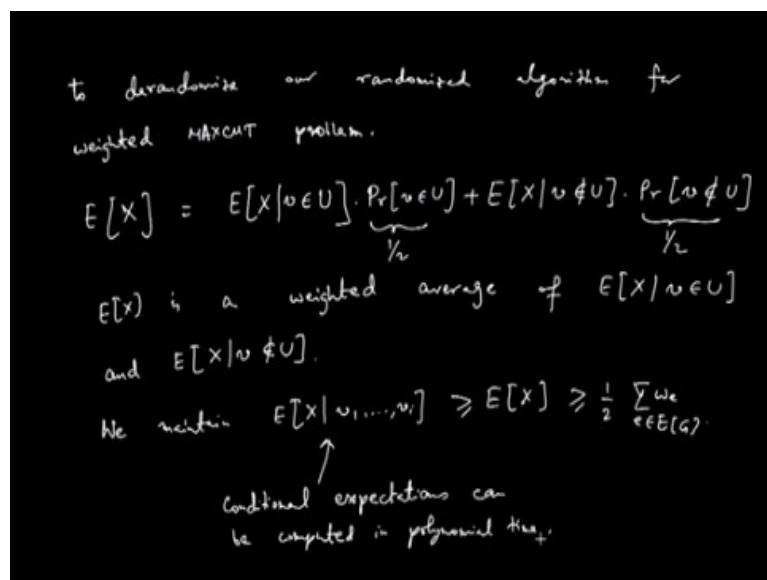 to derandomize our randomized algorithm for
weighted MAXCUT problem.
E[X] = E[X|v∈U]. Pr[v∈U] + E[X|v∉U]. Pr[v∉U]
1/2 1/2
E[X] is a weighted average of E[X|v∈U]
and E[X|v∉U].
We maintain E[X|v₁,...,vᵢ] ⩾ E[X] ⩾ 1/2 ∑ we
e∈E[G].
Conditional expectations can
be computed in polynomial time.